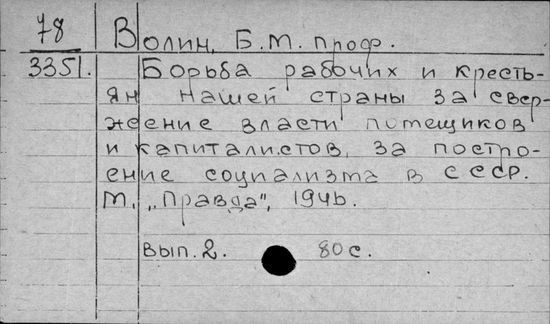 78 Волин, Б.М. проф.
3351. Борьба рабочих и кресть-
ян нашей страны за свер-
жение власти помещиков
и капиталистов, за постро-
ение социализма в СССР.
М., „Правда", 1946.
Вып. 2. 80 с.